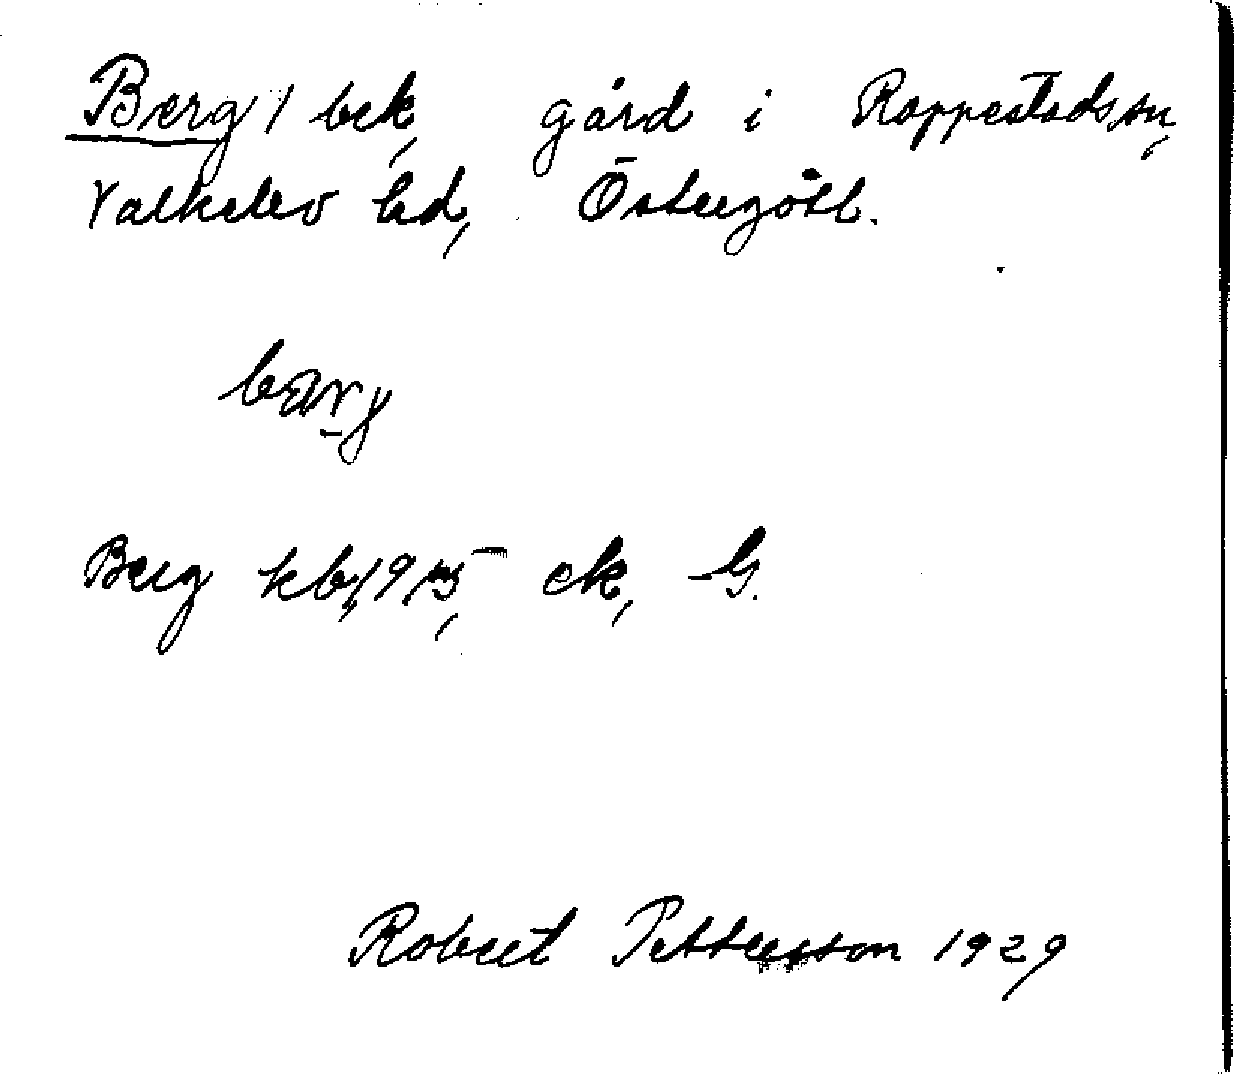 Berg / bek, gård i Rappestads sn,
Valkebo hd, Östergötl.
bærj
Berg kb, 1915, ek, G.
Robert Pettersson 1929